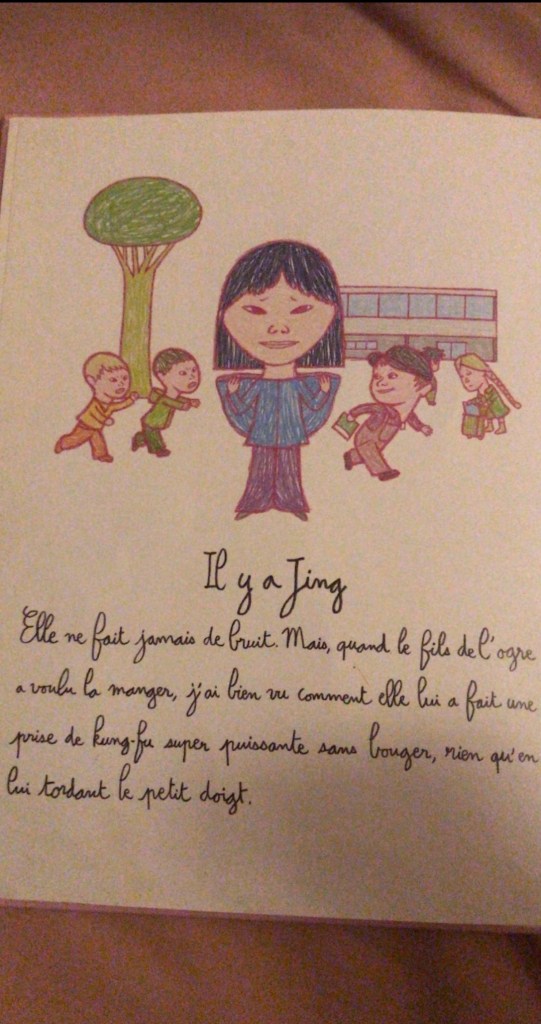 Il y a Jing
Elle ne fait jamais de bruit. Mais, quand le fils de l'ogre
a voulu la manger, j'ai bien vu comment elle lui a fait une
prise de kung-fu super puissante sans bouger, rien qu'en
lui tordant le petit doigt.